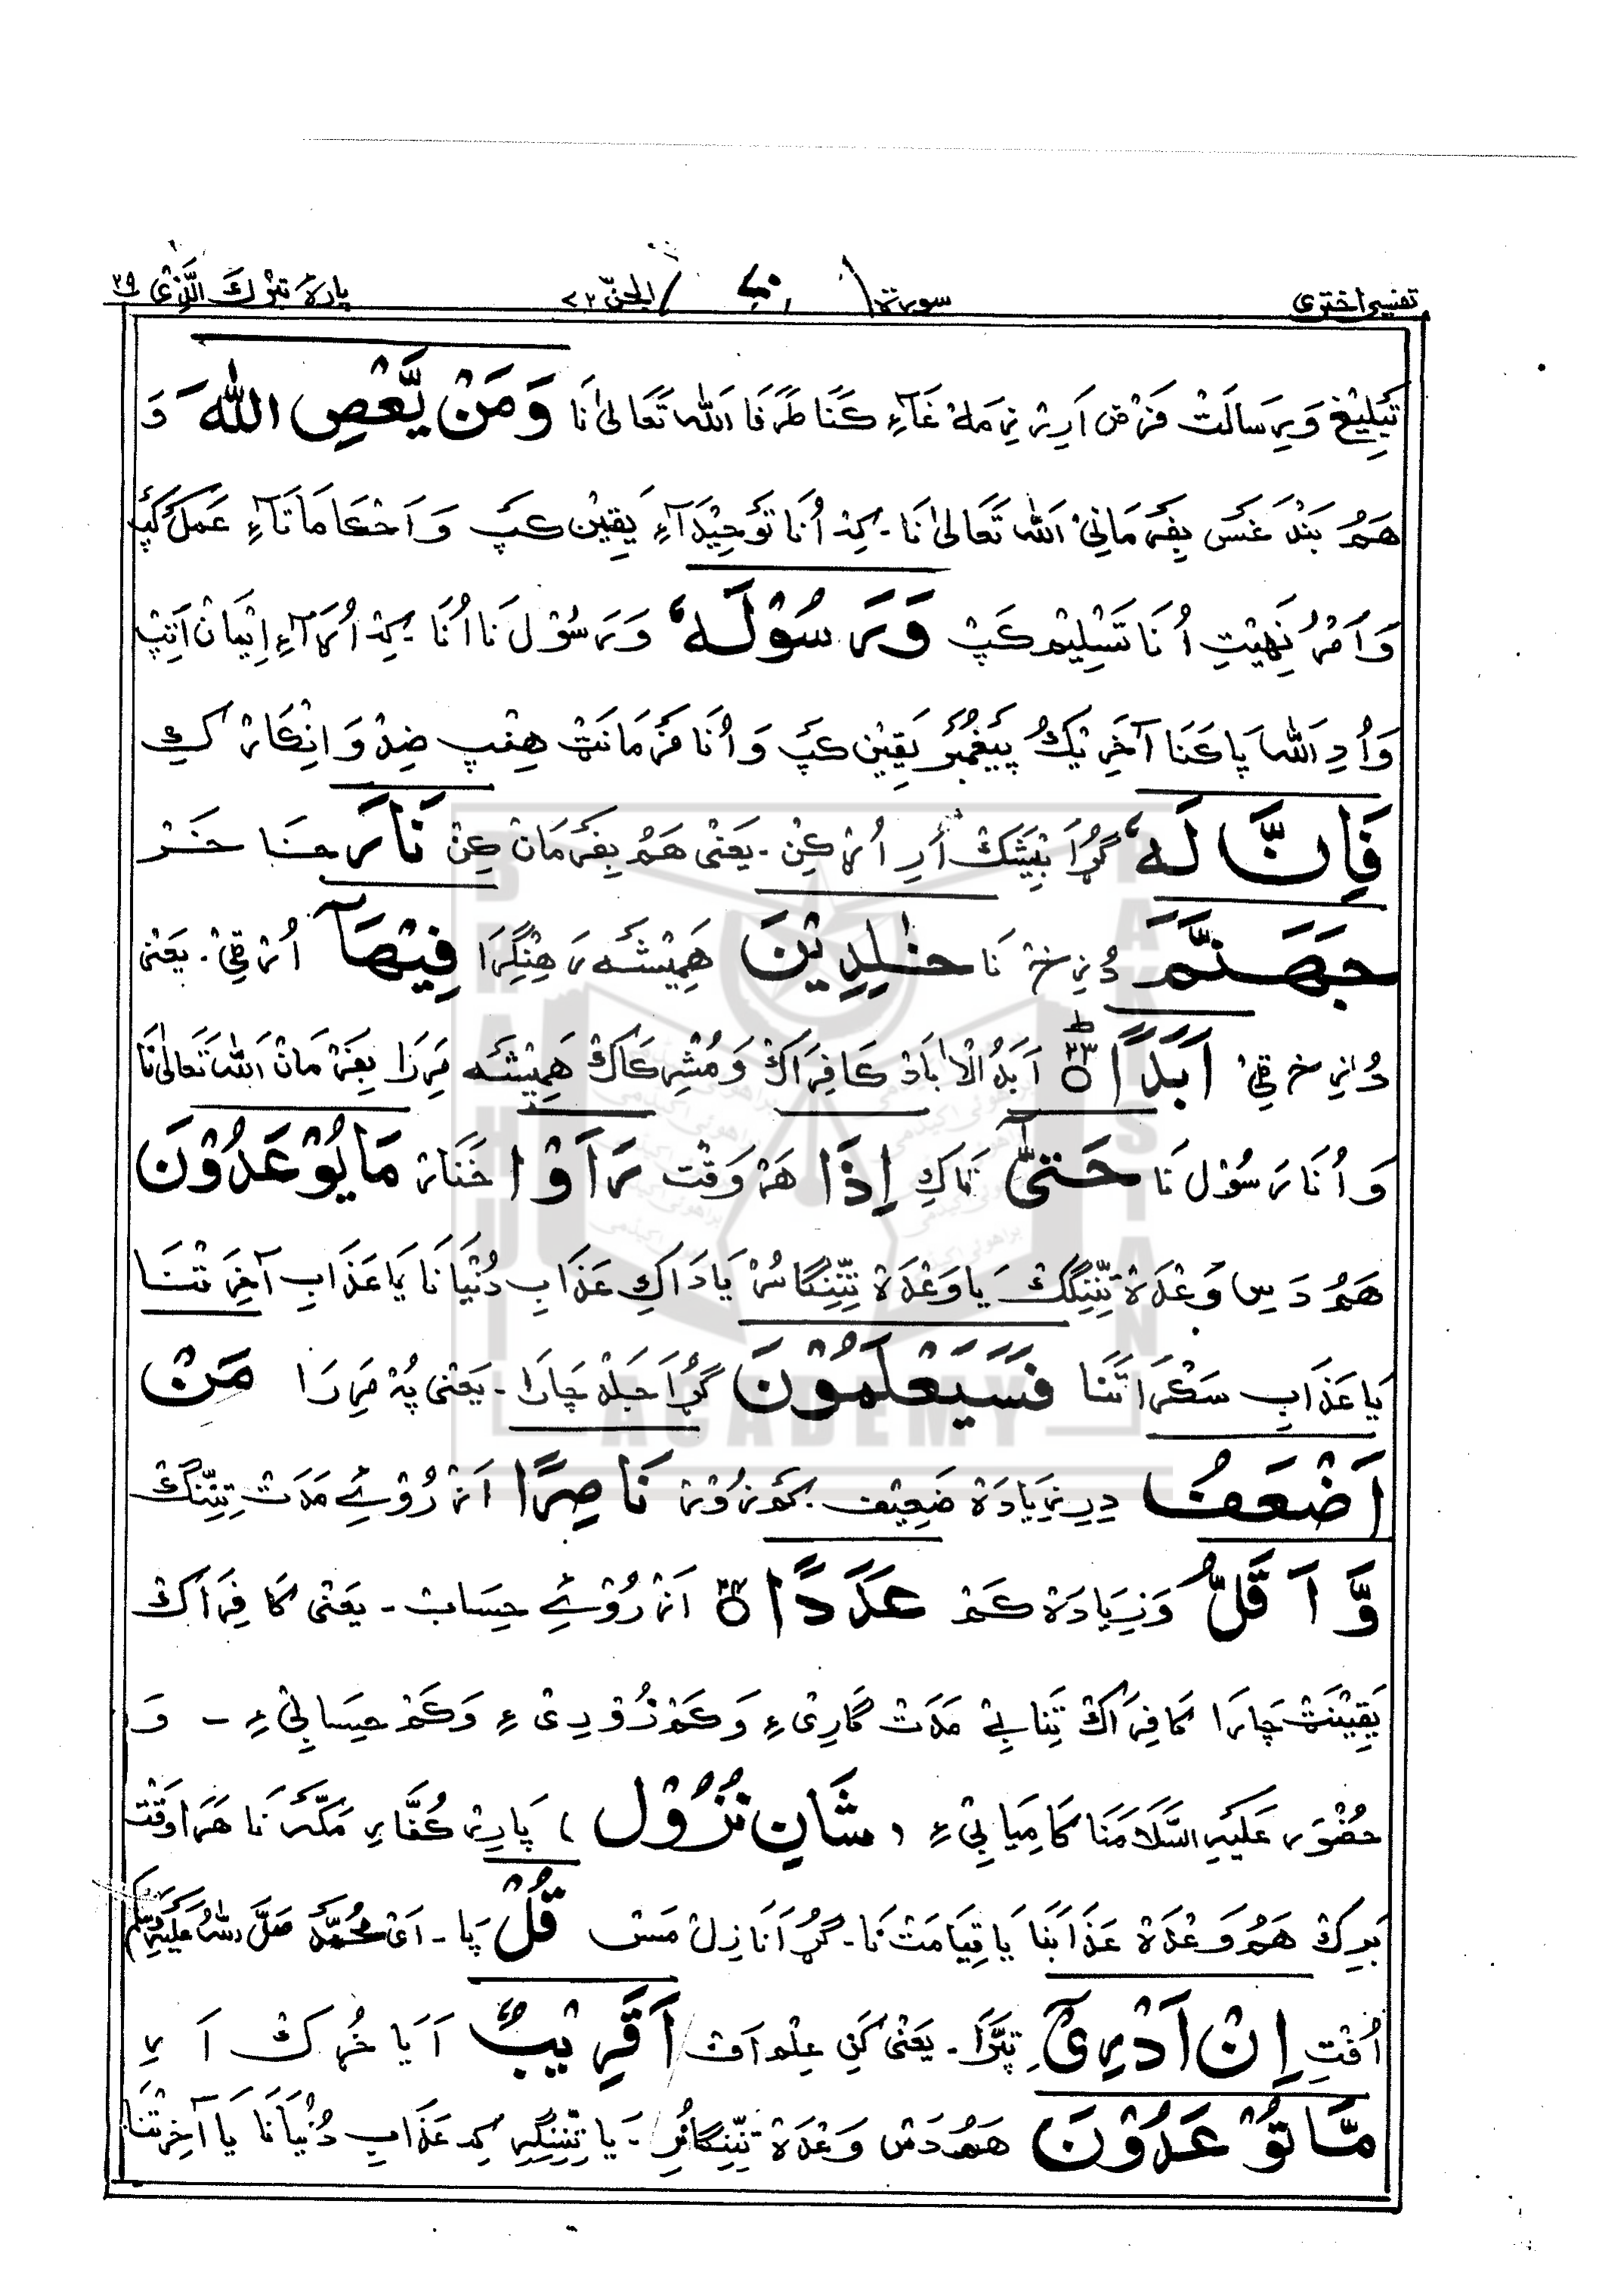 تفسیر اختری سورۃ ۷۰ الجنّ ۷۲ پارۂ تبٰرك الّذی ۲۹
تَبلِیْغ وَ رِسالَتْ فَرْض اَرِیْر نِمَہْ غَاءِ كَنَا طَرَفَا اَللّٰہ تَعَالیٰ نَا وَمَنْ یَّعْصِ اللّٰہَ وَ
هَمُ بَنْدَ غَسَ بِفَرمَانِیْ اَللّٰہ تَعَالیٰ نَا۔ كِہْ اُنَا تَوْحِیْدَآءِ یَقِیْن كَپ وَ اَحْكَامَاتَاءِ عَمَلْ كَپ
وَ اَمْرُ نَهِیْتِ اُنَا تَسْلِیْم كَپْ وَرَسُوْلَہٗ وَ رَسُوْل نَا اُنَا ۔ كِہْ اُرَاءِ اِیْمَانْ اَتِپْ
وَ اُدِ اَللّٰہ پَا كَنَا آخَرِیْكُ پَیْغَمْبَرْ یَقِیْن كَپ وَ اُنَا فَرْمَانَتْ هِنپ ضِدْ وَ اِنْكَارْ كِكِ
فَاِنَّ لَہٗ گُڑَا بَیْشَكْ اَرِ اُرْكِنْ ۔ یَعْنٰی هَمُ بِفَرْمَانْ كِنْ نَارَ خَا خَرْ
جَهَنَّمَ دُزِخْ نَا خٰلِدِیْنَ هَمِیْشَہ رَهِنْگَرَا فِیْهَآ اُرْقِیْ ۔ یَعْنٰی
دُزِخْ قِیْ اَبَدًا ۲۳ اَبَدُ الْاٰبَادْ كَافِرَاكْ وَ مُشْرِكَاكْ هَمِیْشَہ مَرِرَا بِفَرْمَانْ اَللّٰہ تَعَالیٰ نَا
وَ اُنَا رَسُوْل نَا حَتّٰیٓ تَاكِ اِذَا هَرْ وَقْت رَاَوْا خَنَارْ مَا یُوْعَدُوْنَ
هَمُ دَسِ وَعْدَہْ تِنِّنِگكْ یَا وَعْدَہْ تِنِّنِگاسُرْ یَا دَاكِ عَذَابِ دُنْیَا نَا یَا عَذَابِ آخِرَتْنَا
یَا عَذَابِ سَكْرَاتَنَا فَسَیَعْلَمُوْنَ گُڑَا جَلْد چَارَا ۔ یَعْنٰی پُہْ مَرِرَا مَنْ
اَضْعَفُ دِیرِ زِیَادَہْ ضَعِیْف ۔ كَمْزُوْرْ نَاصِرًا اَزْ رُوْئے مَدَتْ تِنِّنگ
وَّ اَقَلُّ وَ زِیَادَہْ كَمْ عَدَدًا ۲۴ اَزْ رُوْئے حِسَابْ ۔ یَعْنٰی كَافِرَاكْ
یَقِیْنَتْ چَارَا كَافِرَاكْ تِنَا بِے مَدَتْ گارِیْءِ وَ كَمْ زُوْرِیْ ءِ وَ كَمْ حِسَابِیْ ءِ ۔ وَ
حُضُوْر عَلَیْہِ السَّلَامَنَا كَامِیَابِیْ ءِ ( شَانِ نُزُوْل ) پَارِرْ كُفَّارِ مَكَّہ نَا هَرَا وَقْت
بَرِكْ هَمُ وَعْدَہْ عَذَابَنَا یَا قِیَامَتْ نَا ۔ گُڑَا نَازِلْ مَس قُلْ پَا ۔ اَیْ مُحَمَّدْ صَلَّی اللّٰہُ عَلَیْہِ وَسَلَّم
اُفْتِ اِنْ اَدْرِیْٓ تِپَّرَا ۔ یَعْنٰی كَنِ عِلْم اَفْ اَقَرِیْبٌ اَیَا خُڑكْ اَرِ
مَّا تُوْعَدُوْنَ هَمُ دَسْ وَعْدَہْ تِنِّنِگارُرِ ۔ یَا تِنِّنِگِرِ كِہ عَذَابِ دُنْیَا نَا یَا آخِرَتْنَا
BRAHUI
ACADEMY
PAKISTAN